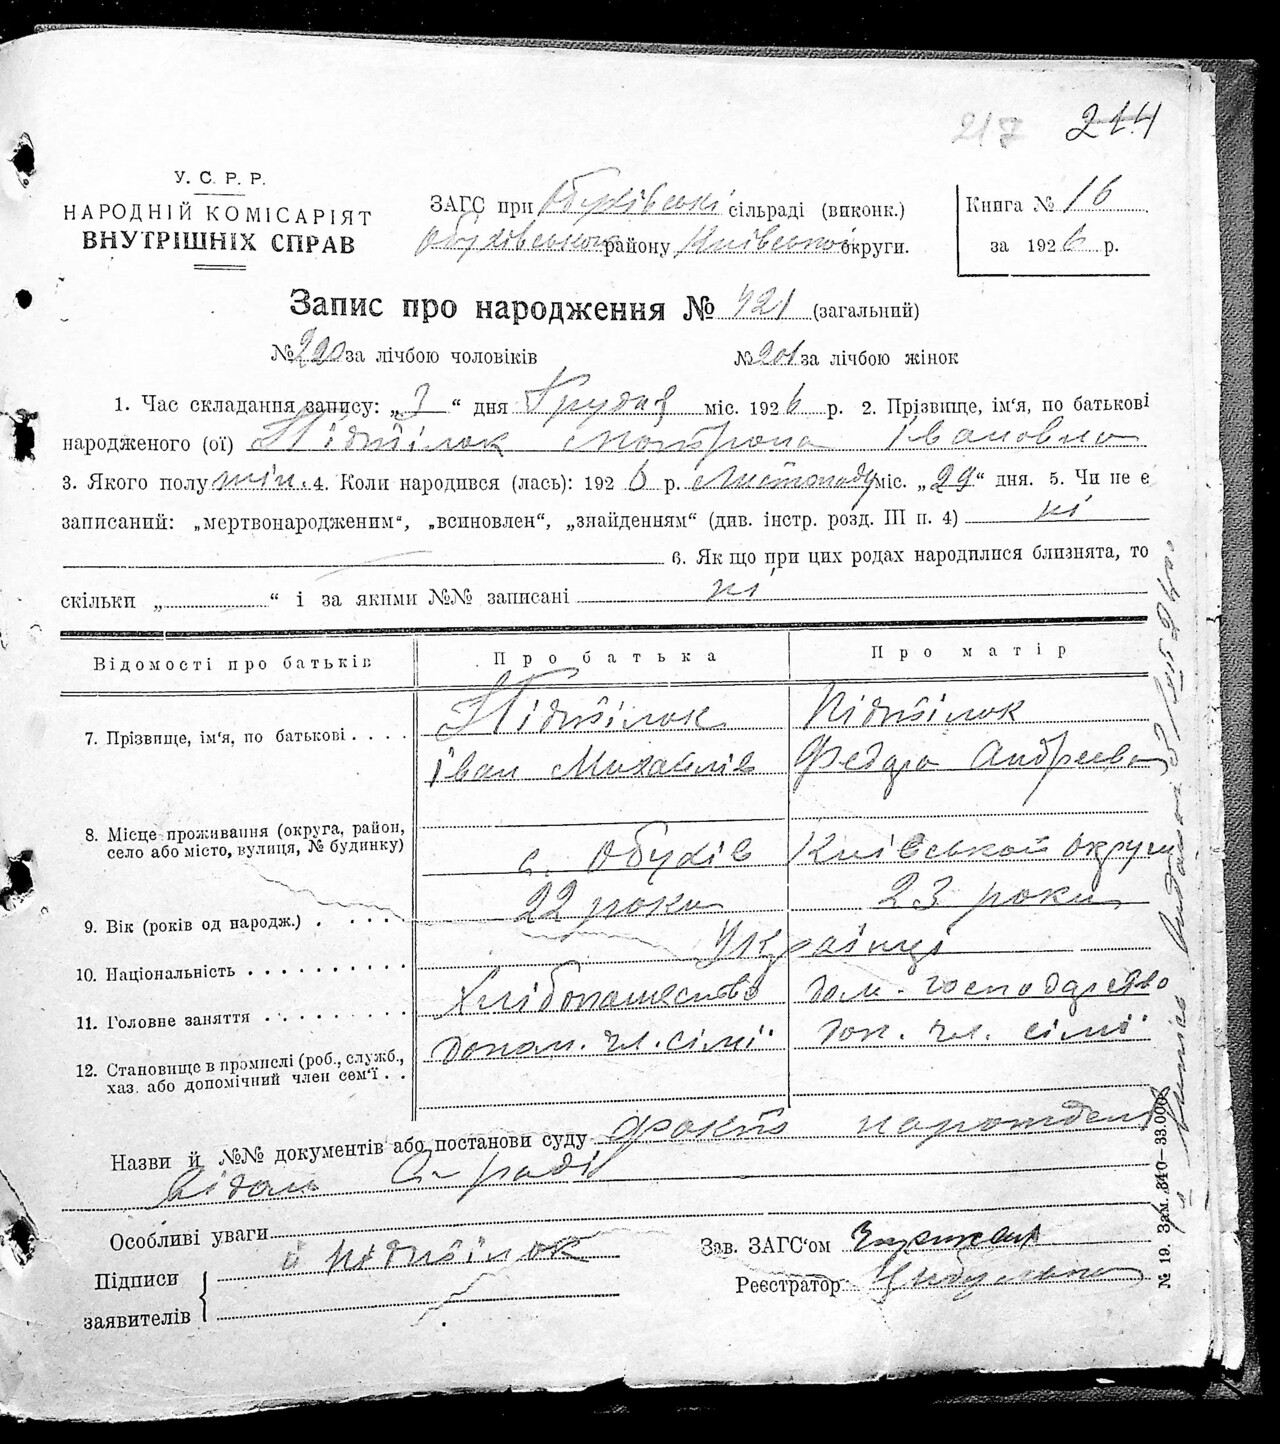 217 214
У. С. Р. Р.
НАРОДНІЙ КОМІСАРІЯТ
ВНУТРІШНІХ СПРАВ
ЗАГС при Обухівські сільраді (виконк.)
Обухівського району Київської округи.
Книга № 16
за 1926 р.
Запис про народження № 421 (загальний)
№ 220 за лічбою чоловіків № 201 за лічбою жінок
1. Час складання запису: „3“ дня Грудня міс. 1926 р. 2. Прізвище, ім‘я, по батькові
народженого (ої) Підтілок Мотрона Івановна
3. Якого полу жін. 4. Коли народився (лась): 1926 р. Листопаду міс. „29“ дня. 5. Чи не є
записаний: „мертвонародженим“, „всиновлен“, „знайденням“ (див. інстр. розд. III п. 4) ні
6. Як що при цих родах народилися близнята, то
скільки „ “ і за якими №№ записані ні
Відомості про батьків Про батька Про матір
7. Прізвище, ім‘я, по батькові . . . . Підтілок Підтілок
Іван Михайлів Федора Андреева
8. Місце проживання (округа, район,
село або місто, вулиця, № будинку) с. Обухів Київської округи
9. Вік (років од народж.) . . . . . 22 роки 23 роки
10. Національність . . . . . . . . . . Українці
11. Головне заняття . . . . . . . . . Хлібопашество дом-господарство
12. Становище в промислі (роб., служб.,
хаз. або допомічний член сем‘ї . . допом. чл. сімії доп. чл. сімії
Назви й №№ документів або постанови суду факт народження
відом. С-раді
Особливі уваги
Підписи
заявителів
й Підтілок
Зав. ЗАГС‘ом
Реєстратор Цибулько
№ 19. Зам. 340—33.000